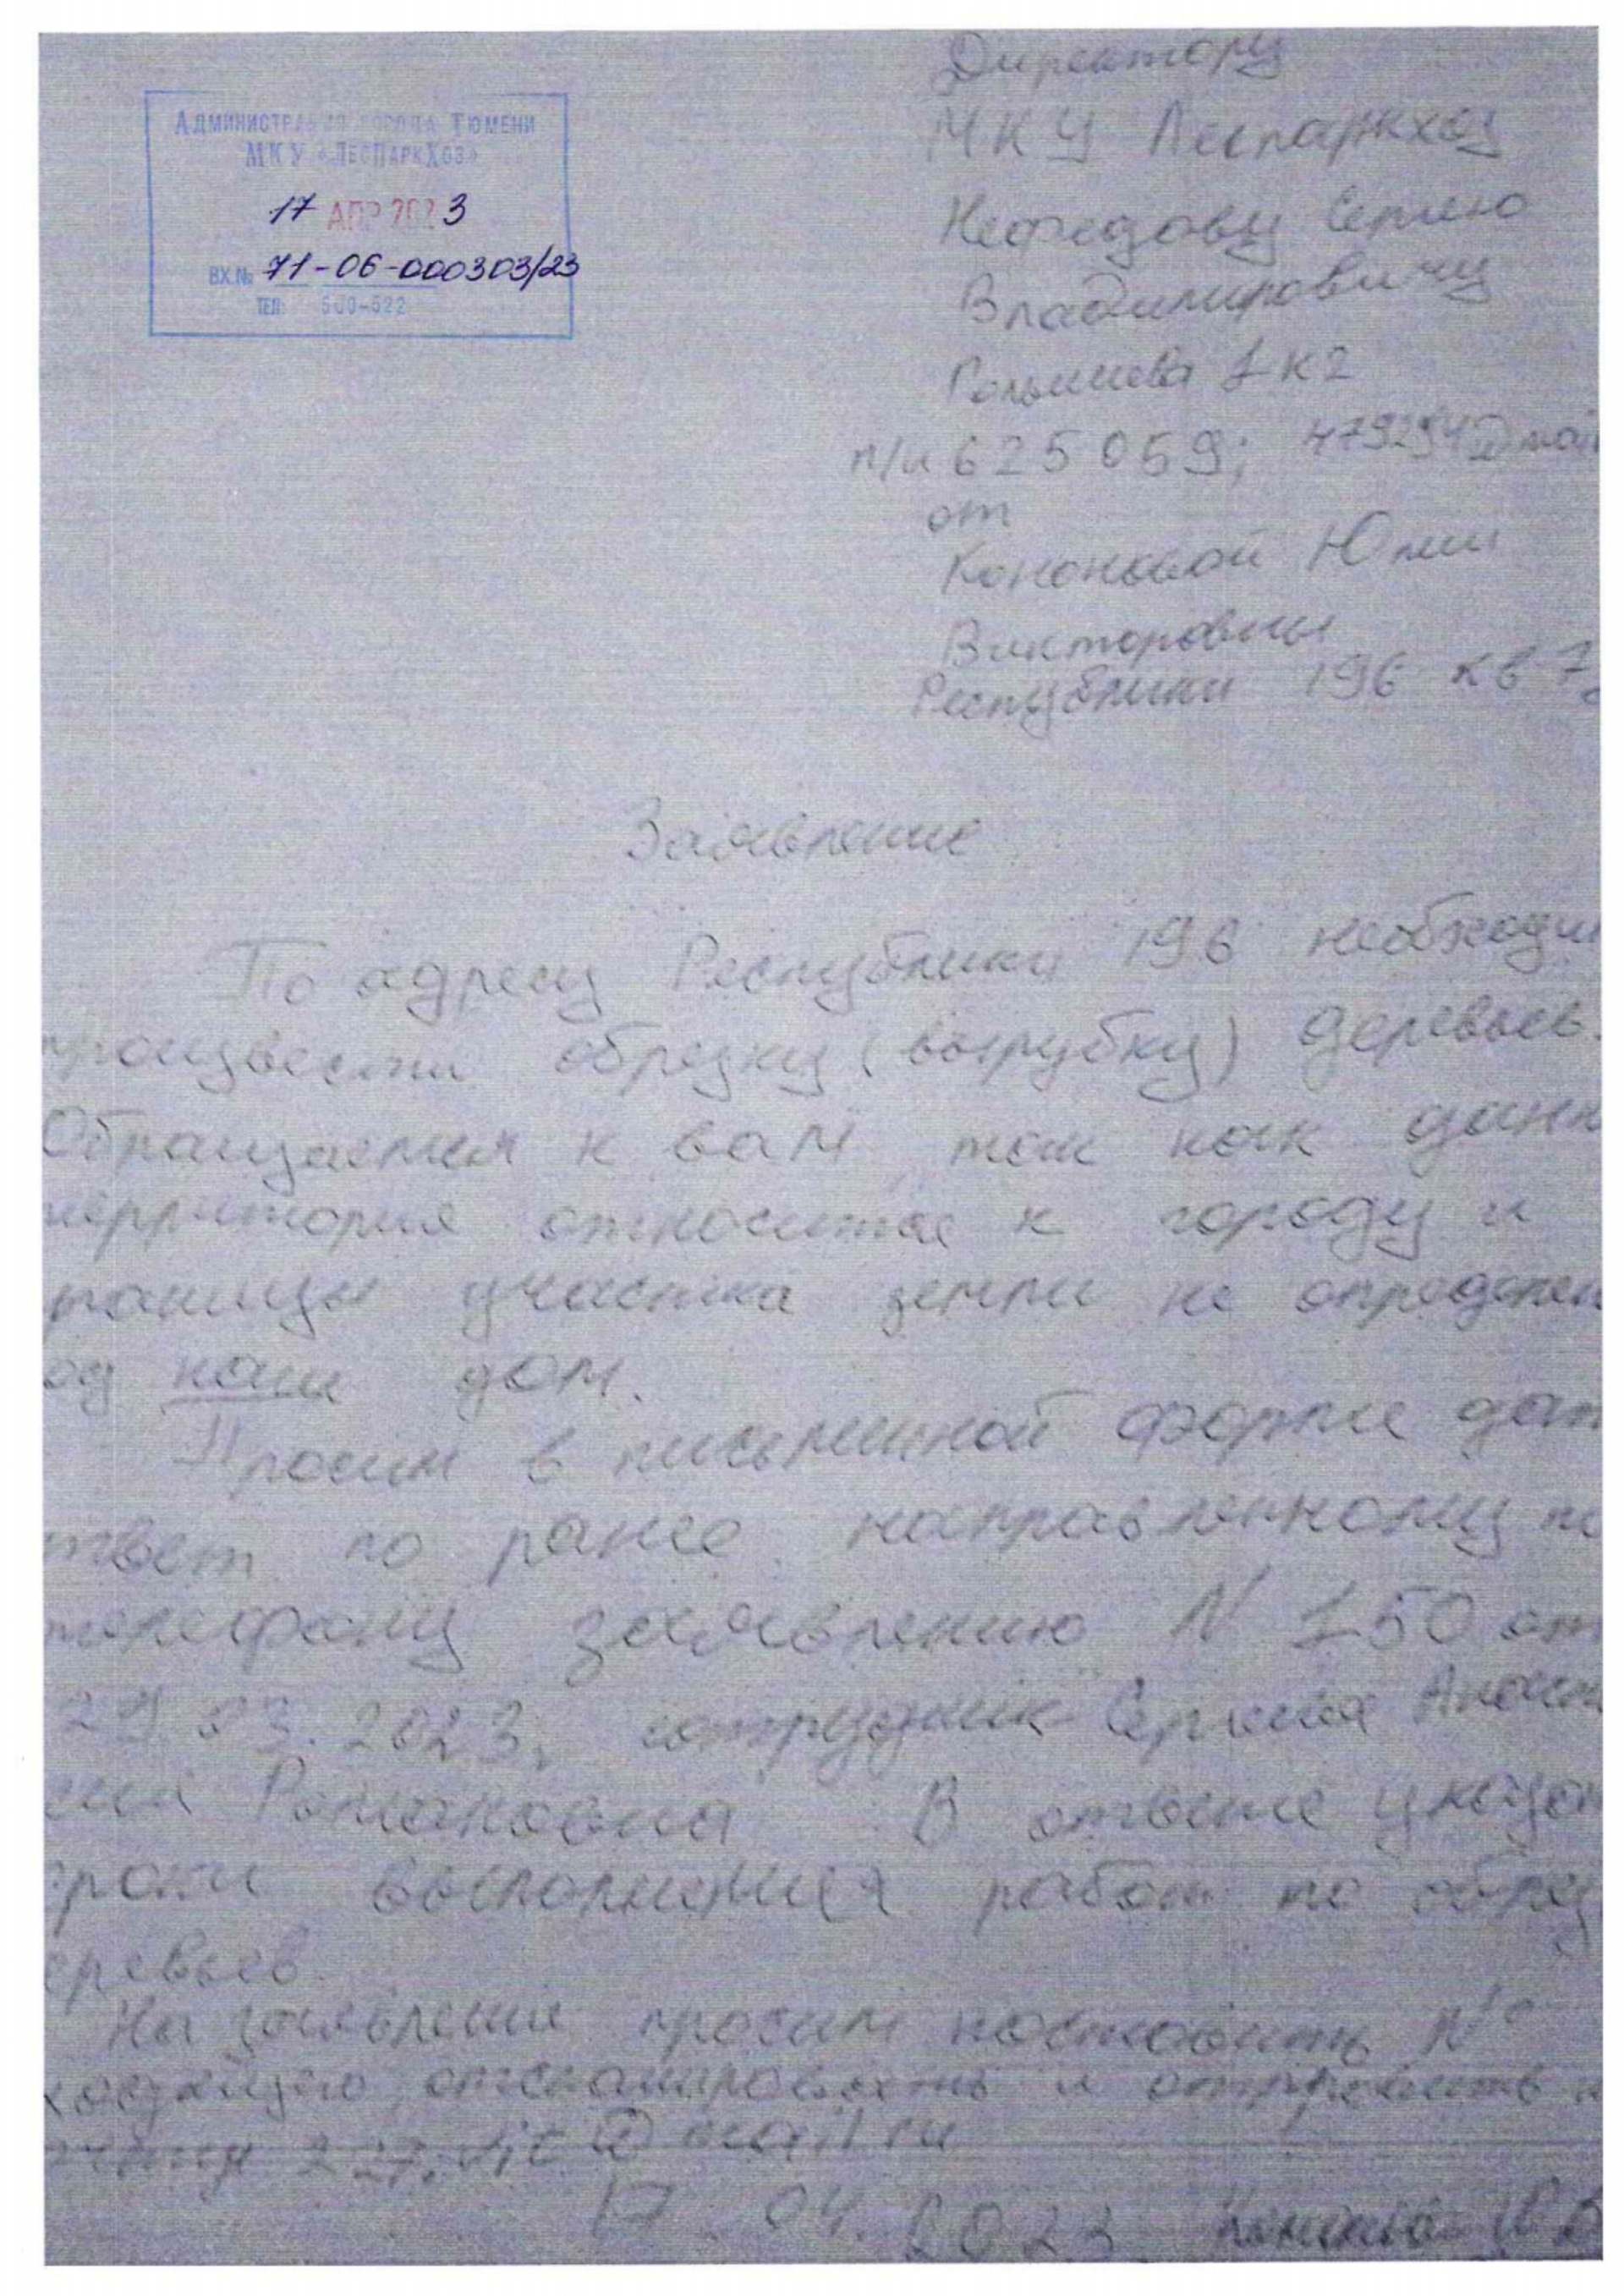 Администрация города Тюмени
МКУ «ЛесПаркХоз»
17 АПР 2023
ВХ.№ 71-06-000303/23
ТЕЛ: 500-522
Директору
МКУ Леспаркхоз
Нефедову Сергею
Владимировичу
1 к 2
п/и 625059;
от
Юлии
Викторовны
Республики 196 кв 7
Заявление
По адресу Республики 196 необходим
произвести обрезку (вырубку) деревьев.
Обращаемся к вам так как данн
территория относится к городу и
границы участка земли не определен
од наш дом.
Просим в письменной форме дат
твет по ранее направленному по
телефону заявлению N 150 от
29.03.2023, сотрудник
Романовна В ответе указат
роки выполнения работ по обрез
еревьев.
На заявление просим поставить N
отсканировать и отправить н
mail.ru
17.04.2023